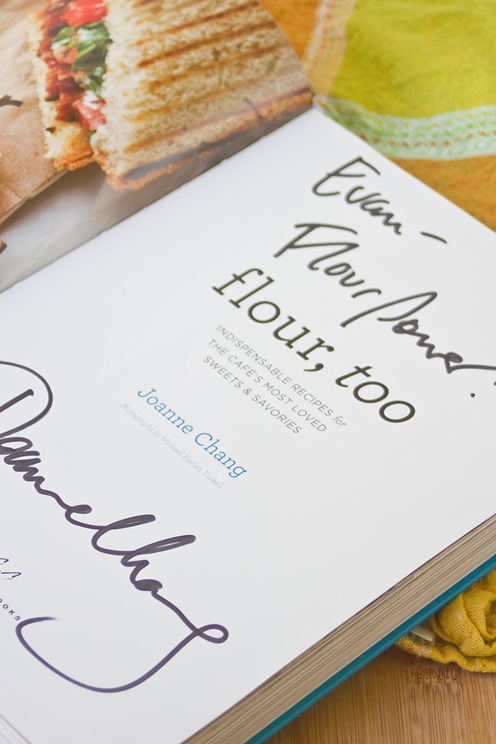 Evan-
Flour Power!
flour, too
INDISPENSABLE RECIPES for
THE CAFÉ'S MOST LOVED
SWEETS & SAVORIES
Joanne Chang
Photographs by Michael Harlan Turkell
Joanne Chang
OOKS